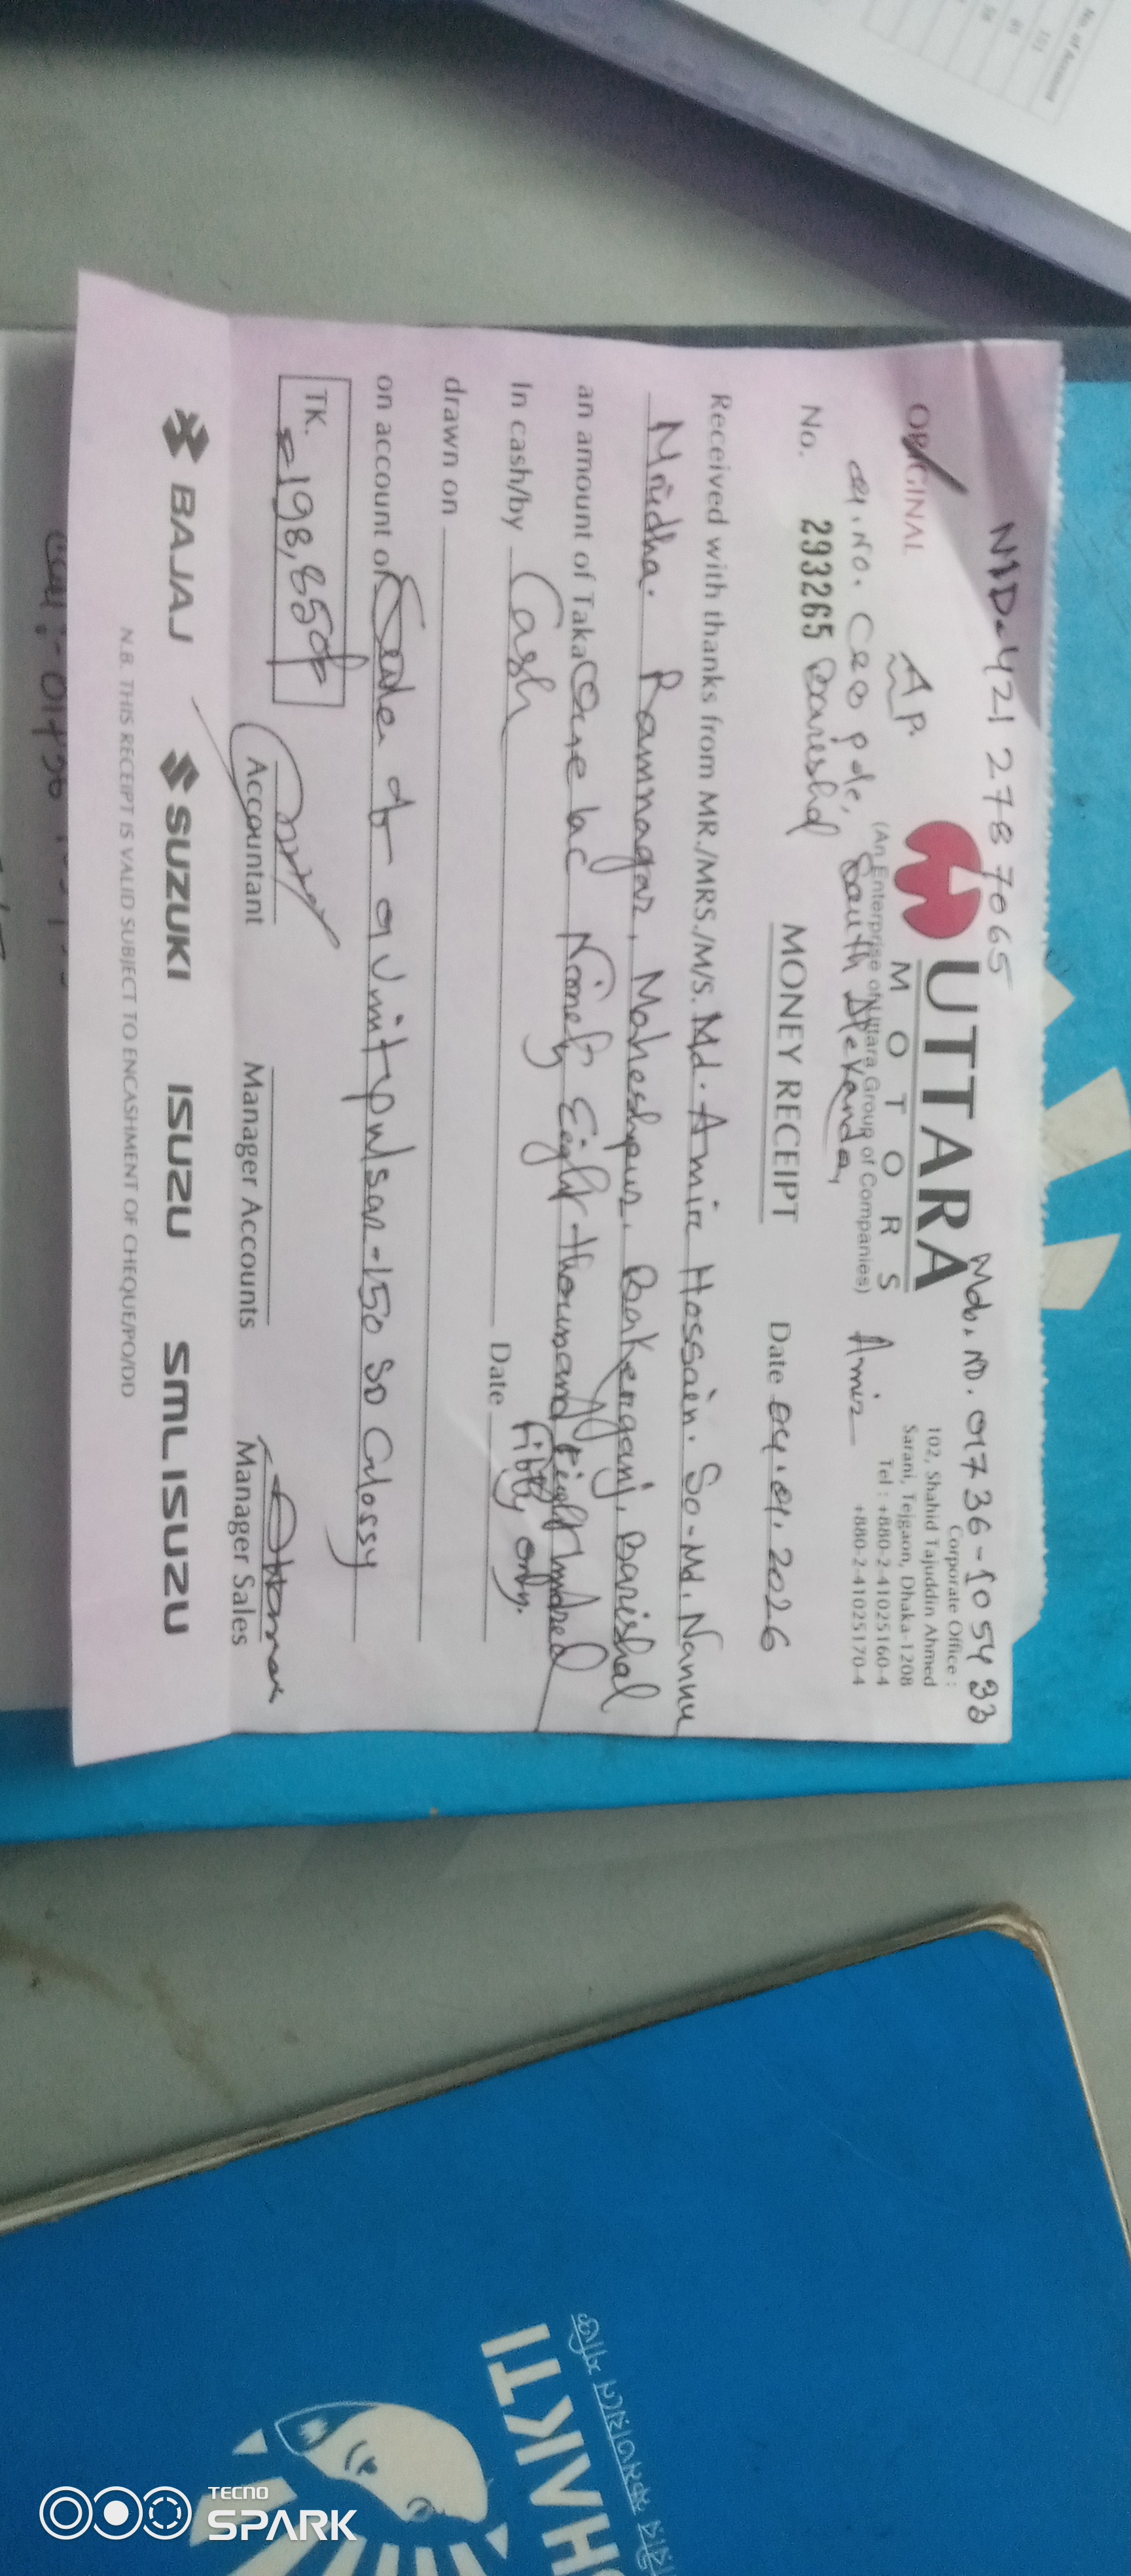 NID-421 278 7065 Mob. No. 01736-105433
ORIGINAL
AP.
UTTARA
MOTORS
(An Enterprise of Uttara Group of Companies)
Corporate Office :
102, Shahid Tajuddin Ahmed
Sarani, Tejgaon, Dhaka-1208
Tel : +880-2-41025160-4
+880-2-41025170-4
C&B pole, South Alekanda,
Amir
No. 293265 Barishal
MONEY RECEIPT
Date 04.01.2026
Received with thanks from MR./MRS./M/S. Md. Amir Hossain. So-Md. Nannu
Mridha. Ramnagar, Maheshpur, Bakerganj, Barishal
an amount of Taka One lac Ninety Eight thousand Eight hundred
Fifty only.
In cash/by Cash Date
drawn on
on account of Sale of a unit pulsar-150 SD Glossy
TK. =198,850/=
Accountant
Manager Accounts
Manager Sales
BAJAJ
SUZUKI
ISUZU
SML ISUZU
N.B. THIS RECEIPT IS VALID SUBJECT TO ENCASHMENT OF CHEQUE/PO/DD
No. of Amount
HAKTI
TECNO
SPARK